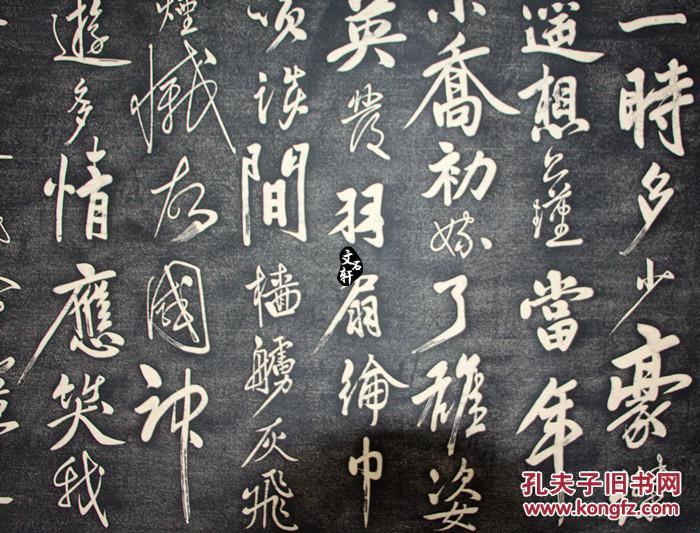 一時多少豪傑
遥想公瑾當年
小喬初嫁了雄姿
英發羽扇綸巾
談間檣艣灰飛
煙滅故國神
遊多情應笑我
文石轩
孔夫子旧书网
www.kongfz.com